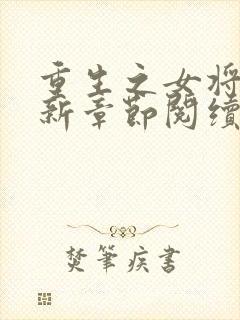 重生之女将
新章節閱續
焚筆疾書